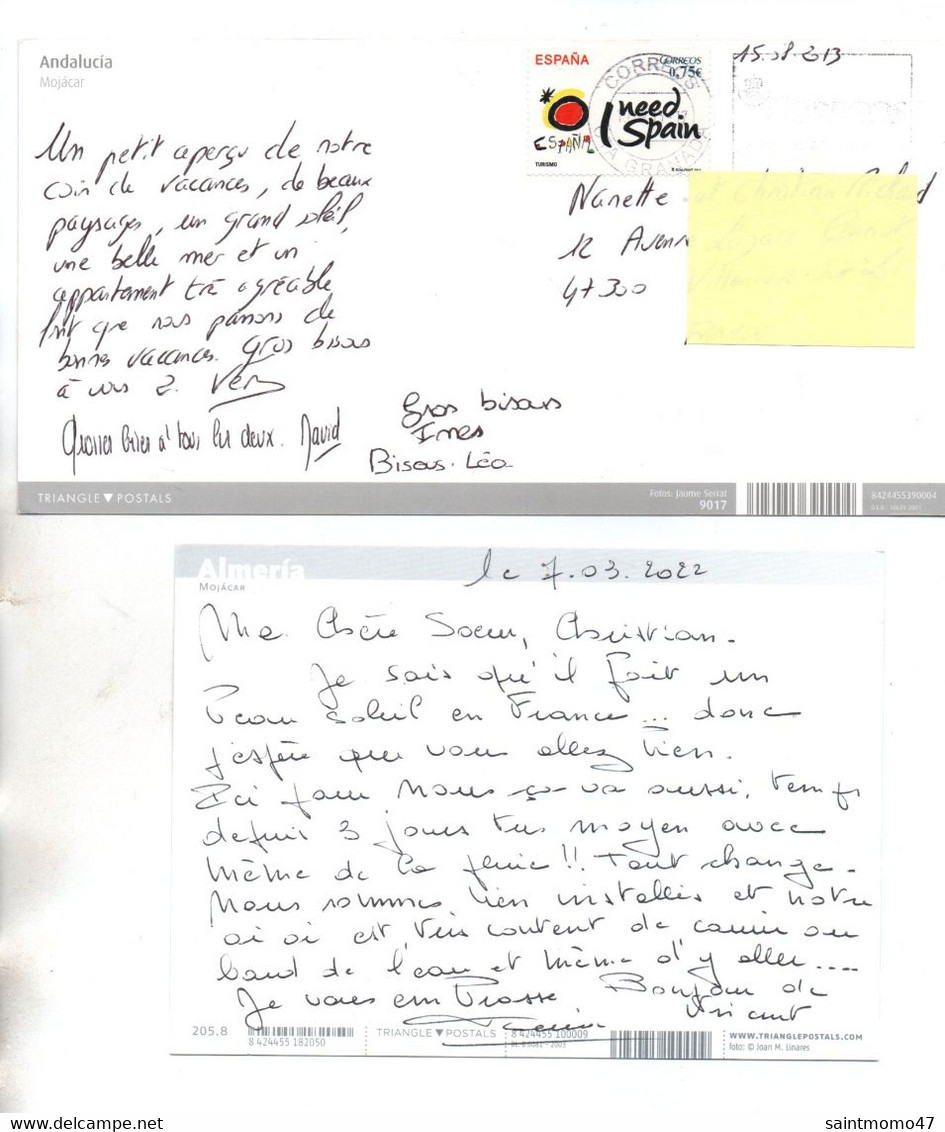 Andalucía
Mojácar
ESPAÑA
CORREOS
0,75€
I need Spain
ESPAÑA
TURISMO
CORREOS
LA GRANADA
15.08.2013
Un petit aperçu de notre
coin de vacances, de beaux
paysages, un grand soleil,
une belle mer et un
appartement très agréable
font que nous passons de
bonnes vacances. Gros bisous
à vous 2. Véro
Grosses bises à tous les deux. David
Gros bisous
Ines
Bisous. Léo
Nanette et Christian
12 Avenue
47300
TRIANGLE ▼ POSTALS
Fotos: Jaume Serrat
9017
8424455390004
Almería
MOJÁCAR
le 7.03.2022
Ma Chère Soeur, Christian.
Je sais qu'il fait un
Beau soleil en France... donc
j'espère que vous allez bien.
Ici pour nous ça va aussi, temps
depuis 3 jours très moyen avec
même de la pluie!! Tout change.
Nous sommes bien installés et notre
est très content de courir au
bord de l'eau et même d'y aller....
Je vous embrasse Bonjour de
Vincent
205.8
8 424455 182050
TRIANGLE ▼ POSTALS
8 424455 100009
WWW.TRIANGLEPOSTALS.COM
foto: © Joan M. Linares
saintmomo47